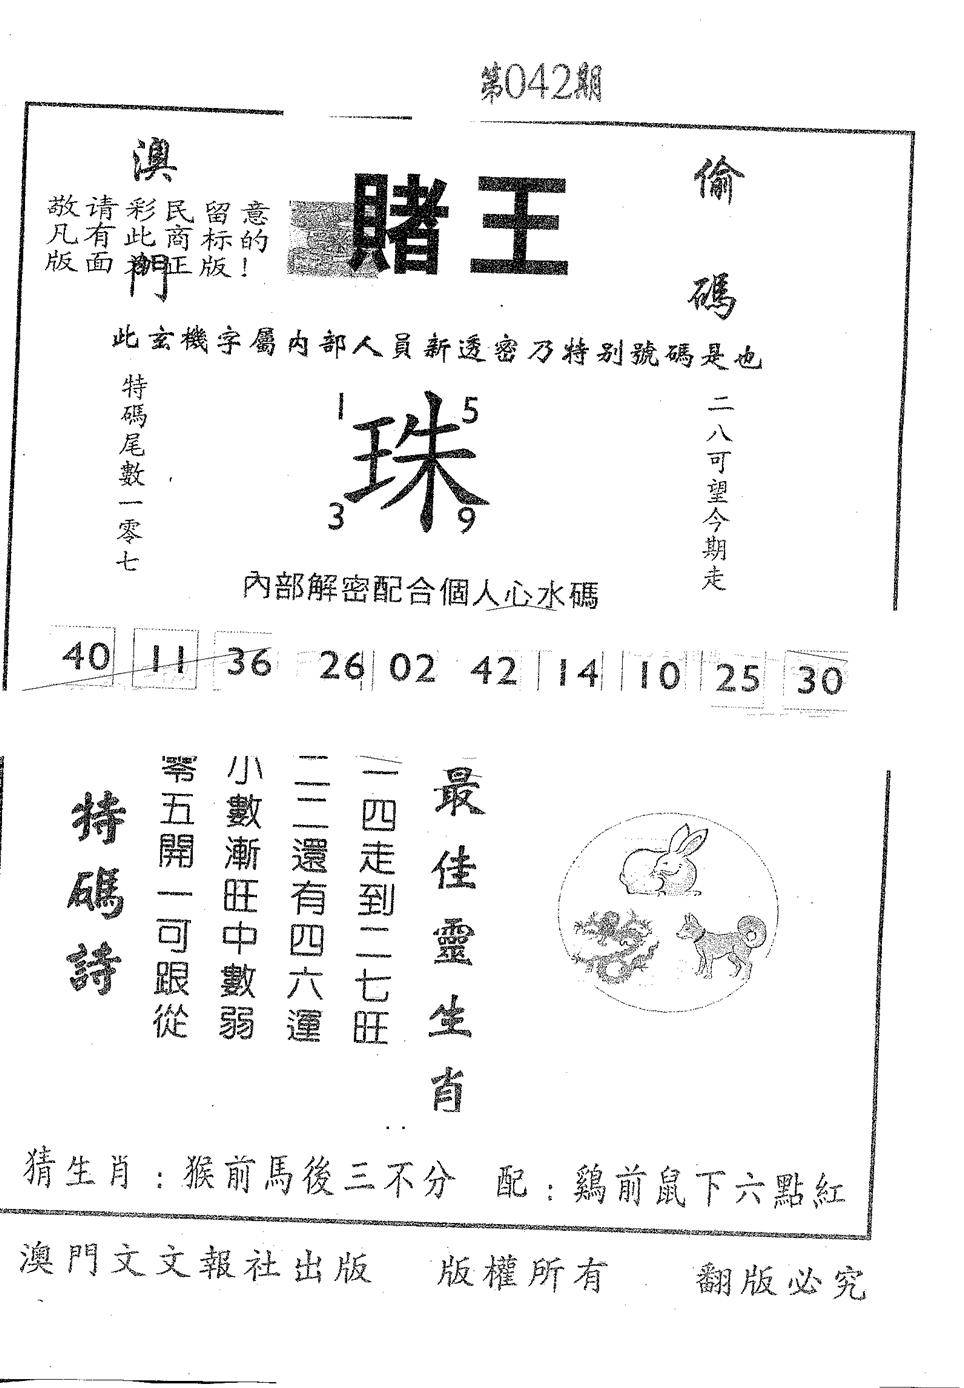 第042期
澳門
賭王
偷碼
敬请彩民留意
凡有此商标的
版面為正版!
此玄機字屬内部人員新透密乃特别號碼是也
特碼尾數一零七
1 5
珠
3 9
二八可望今期走
內部解密配合個人心水碼
40 11 36 26 02 42 14 10 25 30
最佳靈生肖
一四走到二七旺
二二還有四六運
小數漸旺中數弱
零五開一可跟從
特碼詩
猜生肖:猴前馬後三不分 配:鷄前鼠下六點紅
澳門文文報社出版 版權所有 翻版必究